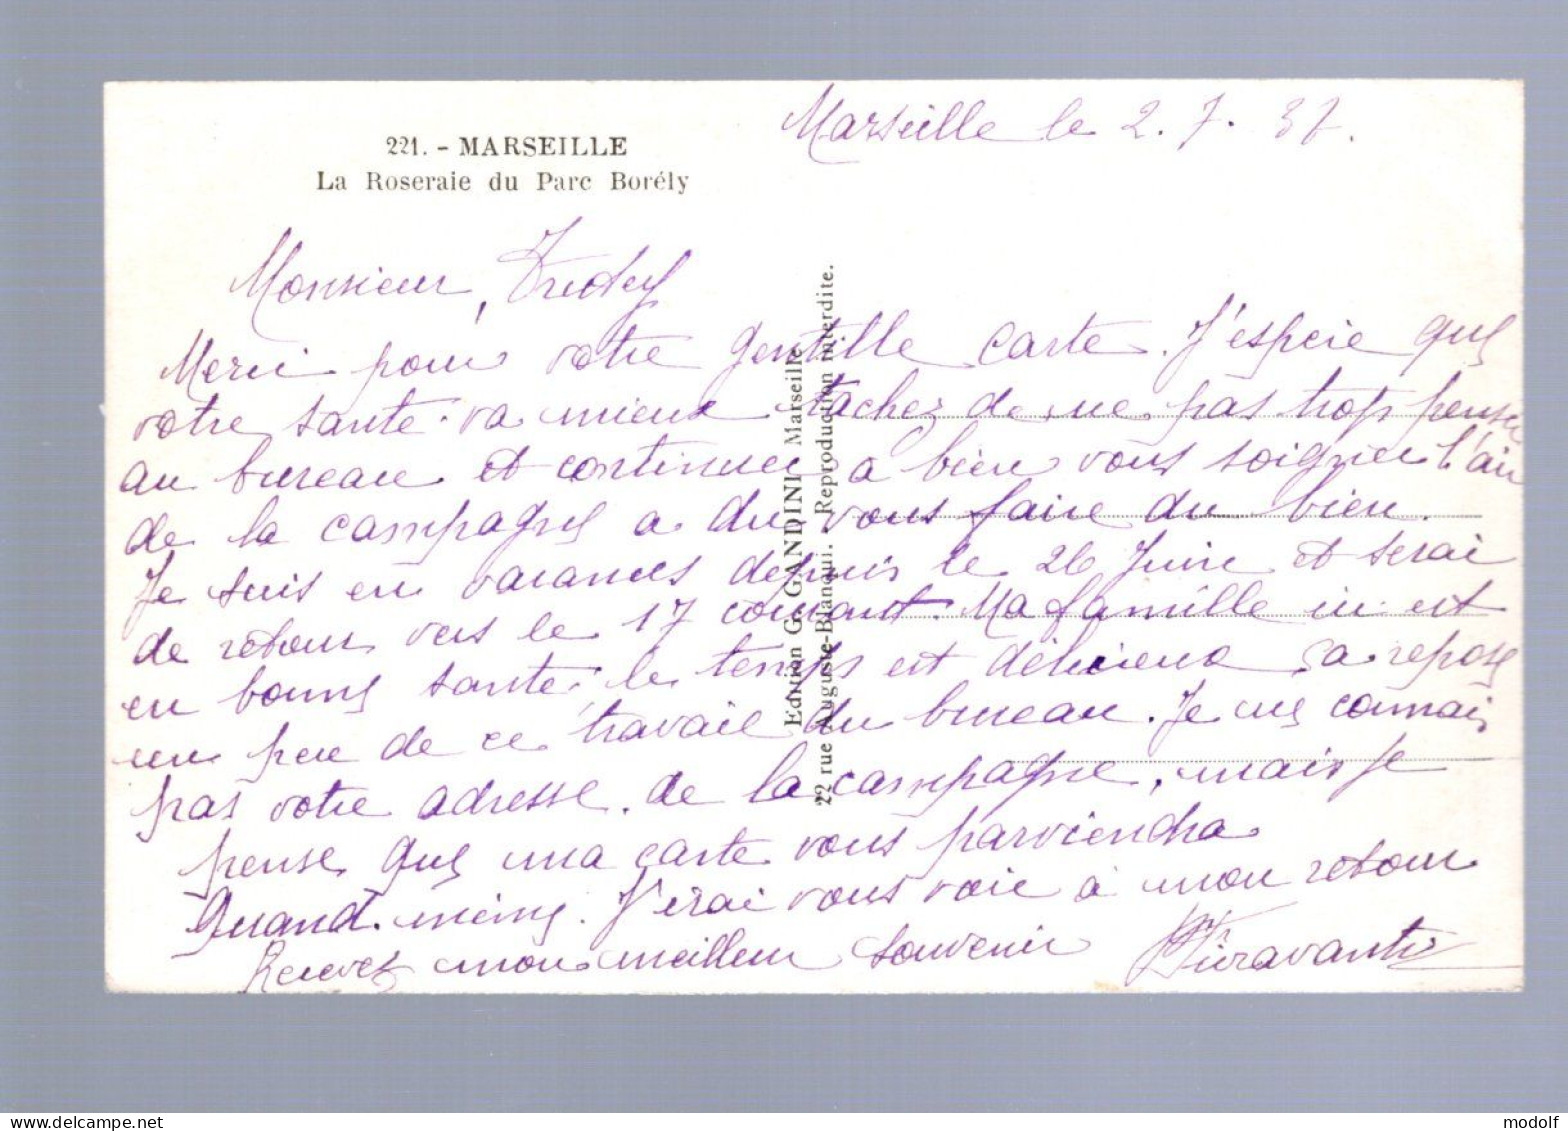 221. - MARSEILLE
La Roseraie du Parc Borély
Marseille le 2. 7. 37.
Monsieur,
Merci pour votre gentille carte. J'espère que
votre santé va mieux tachez de ne pas trop penser
au bureau et continuer à bien vous soigner l'air
de la campagne a du vous faire du bien.
Je suis en vacances depuis le 26 Juin et serai
de retour vers le 17 courant. Ma famille ici est
en bonne santé, le temps est délicieux ça repose
un peu de ce travail du bureau. Je ne connais
pas votre adresse de la campagne, mais je
pense que ma carte vous parviendra
Quand même. J'irai vous voir à mon retour
Recevez mon meilleur souvenir
Fieravanti
Edition G. GANDINI Marseille
22 rue Auguste-Blanqui. Reproduction interdite.
modolf